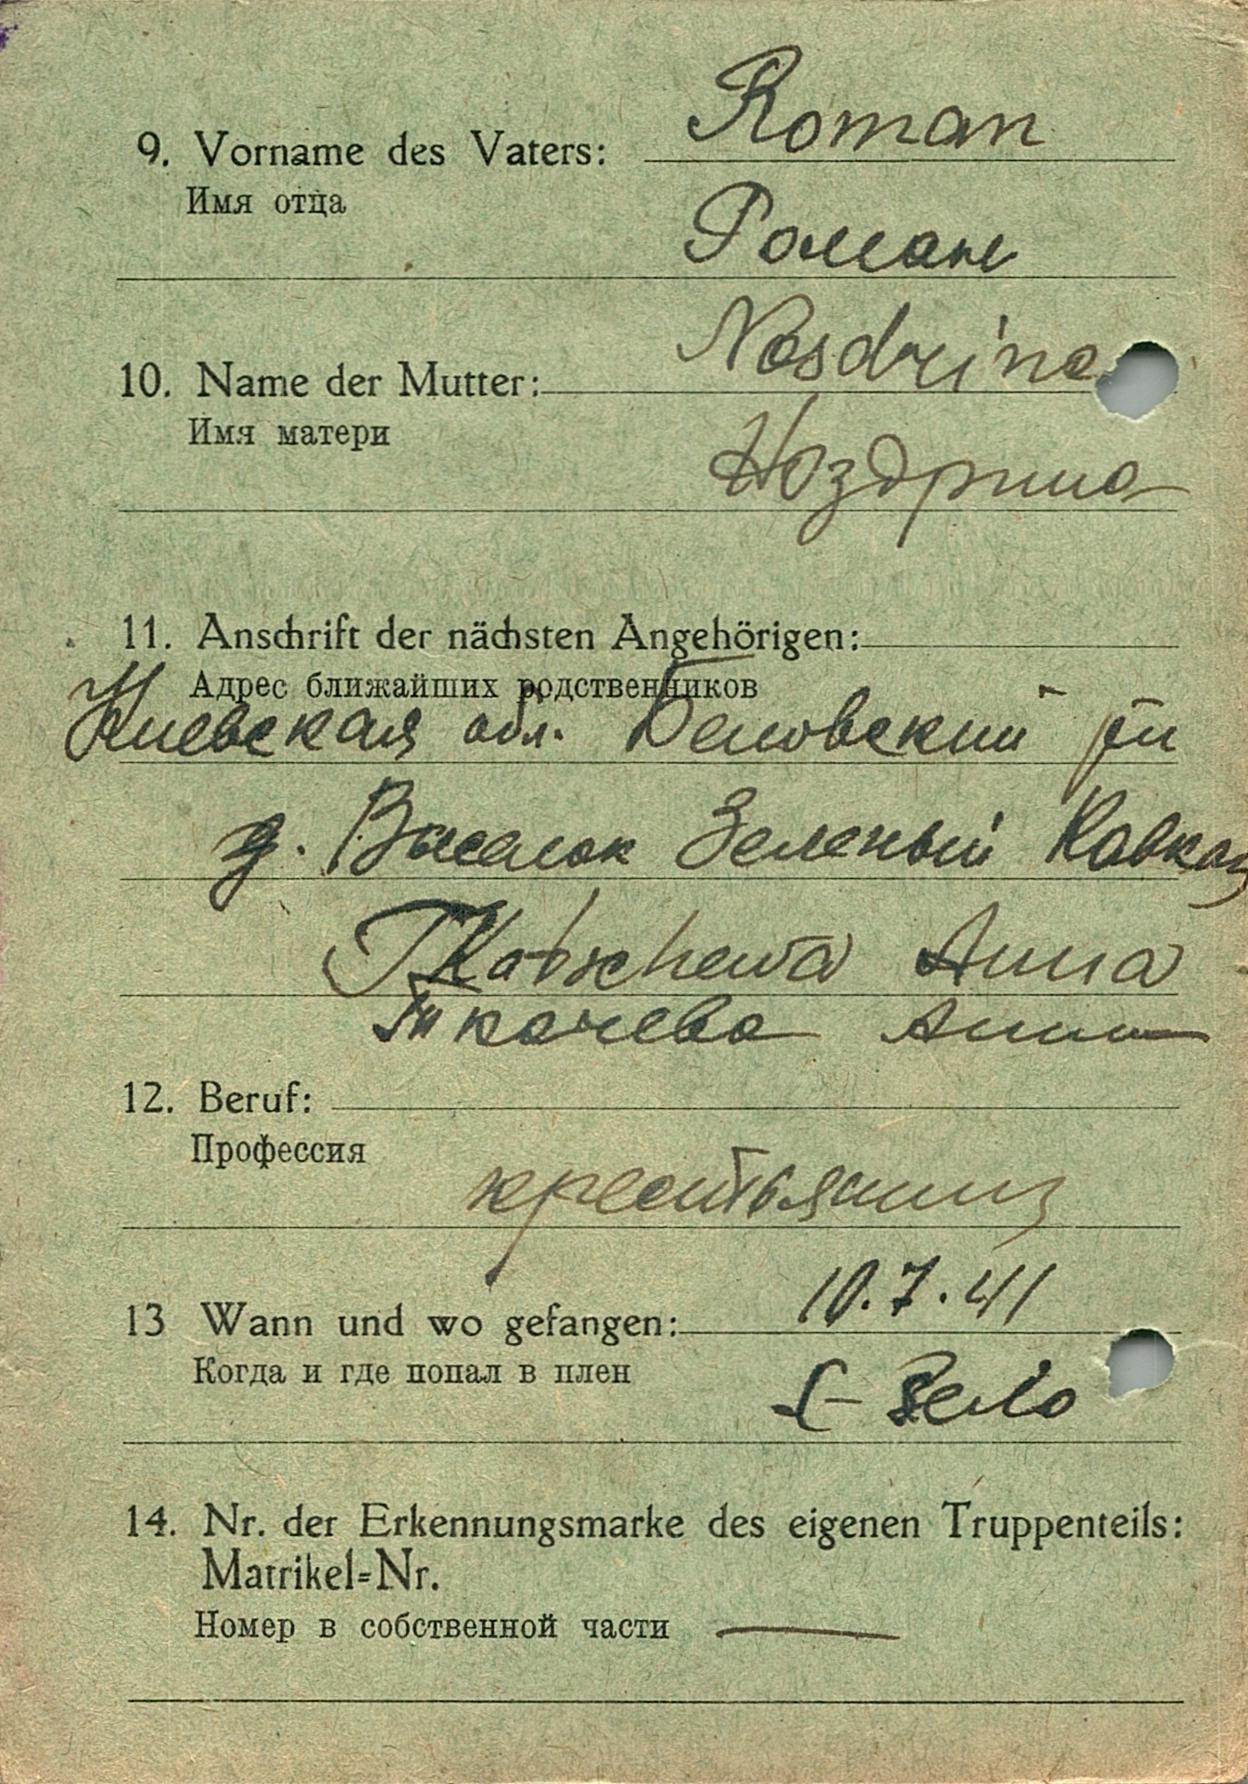 Roman
9. Vorname des Vaters:
Имя отца
Роман
Nosdrina
10. Name der Mutter:
Имя матери
Ноздрина
11. Anschrift der nächsten Angehörigen:
Адрес ближайших родственников
обл. р-н
д. Выселок Зеленый Кавказ
Tkatschewa Anna
Ткачева Анна
12. Beruf:
Профессия
крестьянин
10.7.41
13 Wann und wo gefangen:
Когда и где попал в плен
14. Nr. der Erkennungsmarke des eigenen Truppenteils:
Matrikel=Nr.
Номер в собственной части —